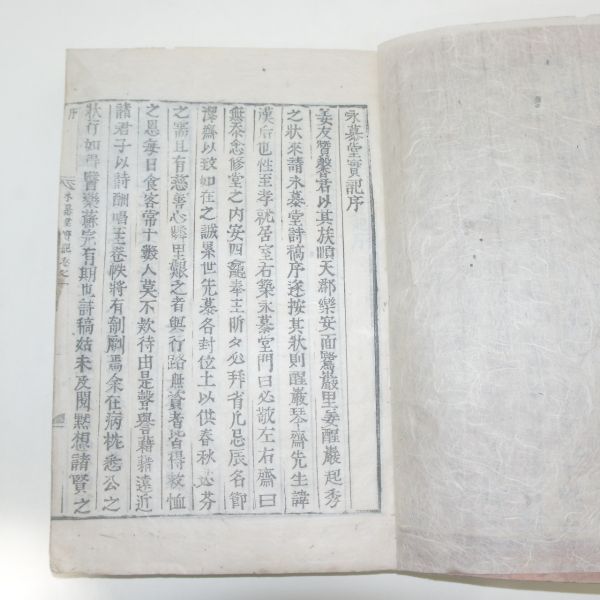 永慕堂實記序
姜友賢馨君以其族順天郡樂安面鶩巖里姜醒巖起秀
之狀來請永慕堂詩稿序遂按其狀則醒巖琴齋先生諱
漢后也性至孝就居室右築永慕堂門曰必敬左右齋曰
無忝念修堂之內安四龕奉主昕夕必拜省凡忌辰名節
潔齋以致如在之誠累世先墓各封位土以供春秋苾芬
之需且有慈善心縣里艱之者與行路無資者皆得救恤
之恩每日食客常十數人莫不款待由是聲譽藉藉遠近
諸君子以詩酬唱至卷帙將有剞劂焉余在病枕悉公之
狀行如得醫藥蘇完有期也詩稿姑未及閱默想諸賢之
序
永慕堂實記卷之一